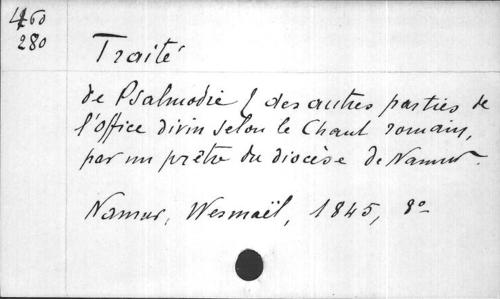 460
280
Traité
de Psalmodie & des autres parties de
l'office divin selon le Chant romain,
par un prêtre du diocèse de Namur.
Namur, Wesmaël, 1845, 8º